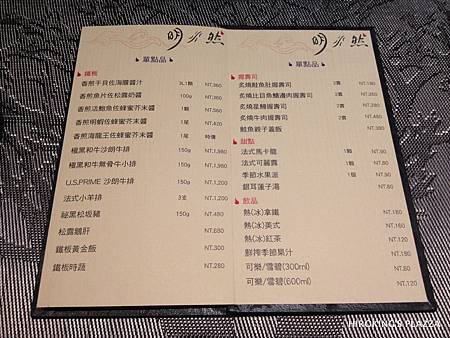 明水然
單點品
鐵板
香煎干貝佐海膽醬汁 3L1顆 NT,360
香煎魚片佐松露奶醬 100g NT,360
香煎活鮑魚佐蜂蜜芥末醬 1顆 NT,360
香煎明蝦佐蜂蜜芥末醬 1尾 NT,420
香煎海龍王佐蜂蜜芥末醬 1尾 時價
極黑和牛沙朗牛排 150g NT,1,980
極黑和牛無骨牛小排 150g NT,1,980
U.S.PRIME 沙朗牛排 150g NT,1,200
法式小羊排 3支 NT,1,200
祕黑松坂豬 150g NT,480
松露鵝肝 NT,680
鐵板黃金飯 NT,300
鐵板時蔬 NT,280
明水然
單點品
握壽司
炙燒鮭魚肚握壽司 2貫 NT,180
炙燒比目魚鰭邊肉握壽司 2貫
炙燒星鰻握壽司 2貫 NT,280
炙燒牛肉握壽司 2貫 NT,480
鮭魚親子蓋飯 NT,380
甜點
法式馬卡龍 1顆 NT,90
法式可麗露 1個 NT,80
季節水果派 1個 NT,90
銀耳蓮子湯 NT,80
飲品
熱(冰)拿鐵 NT,180
熱(冰)美式 NT,160
熱(冰)紅茶 NT,120
鮮搾季節果汁 NT,180
可樂/雪碧(300ml) NT,80
可樂/雪碧(600ml) NT,120
HIROKING'S PLAZZA